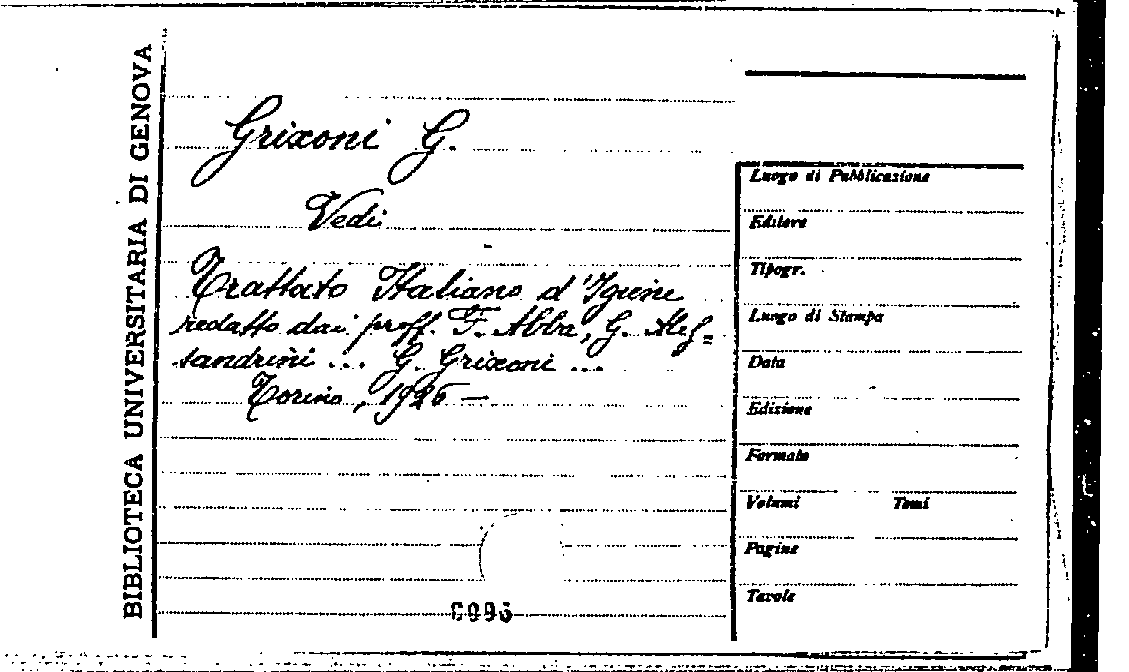 BIBLIOTECA UNIVERSITARIA DI GENOVA
Grixoni G.
Vedi
Trattato Italiano d'Igiene
redatto dai proff. F. Abba, G. Ales=
sandrini ... G. Grixoni ...
Torino, 1926 —
0096
Luogo di Pubblicazione
Editore
Tipogr.
Luogo di Stampa
Data
Edizione
Formato
Volumi Tomi
Pagine
Tavole